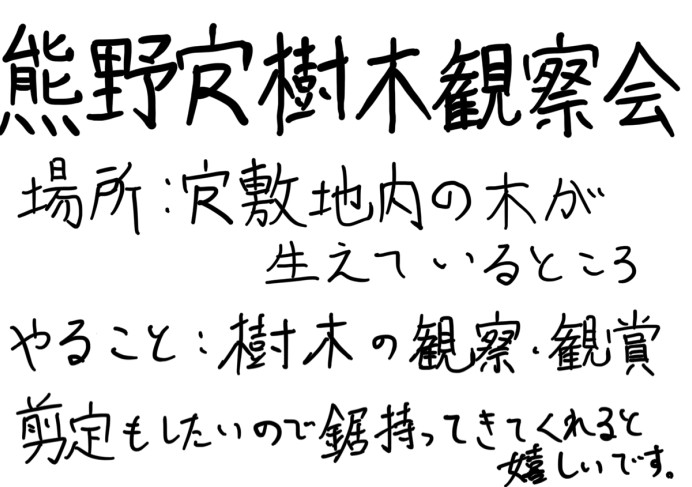 熊野寮樹木観察会
場所:寮敷地内の木が
生えているところ
やること:樹木の観察・観賞
剪定もしたいので鋸持ってきてくれると
嬉しいです。